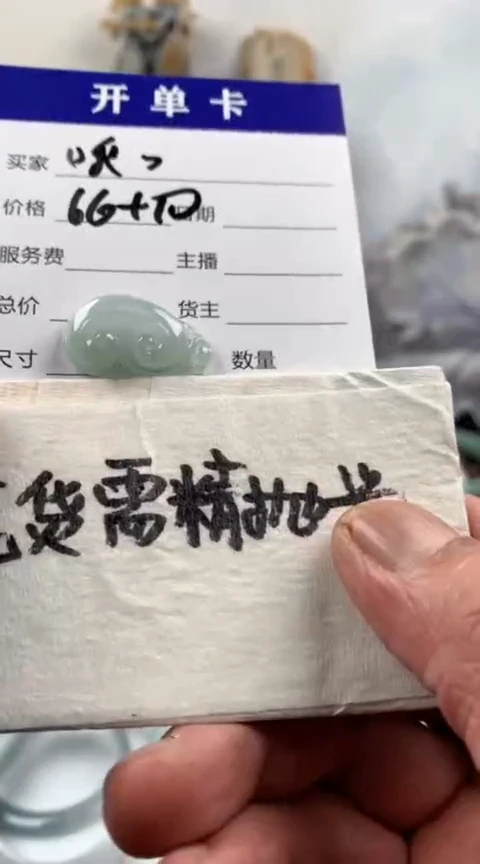 开单卡
买家
价格 66+
服务费 主播
总价 货主
尺寸 数量
货需精抛